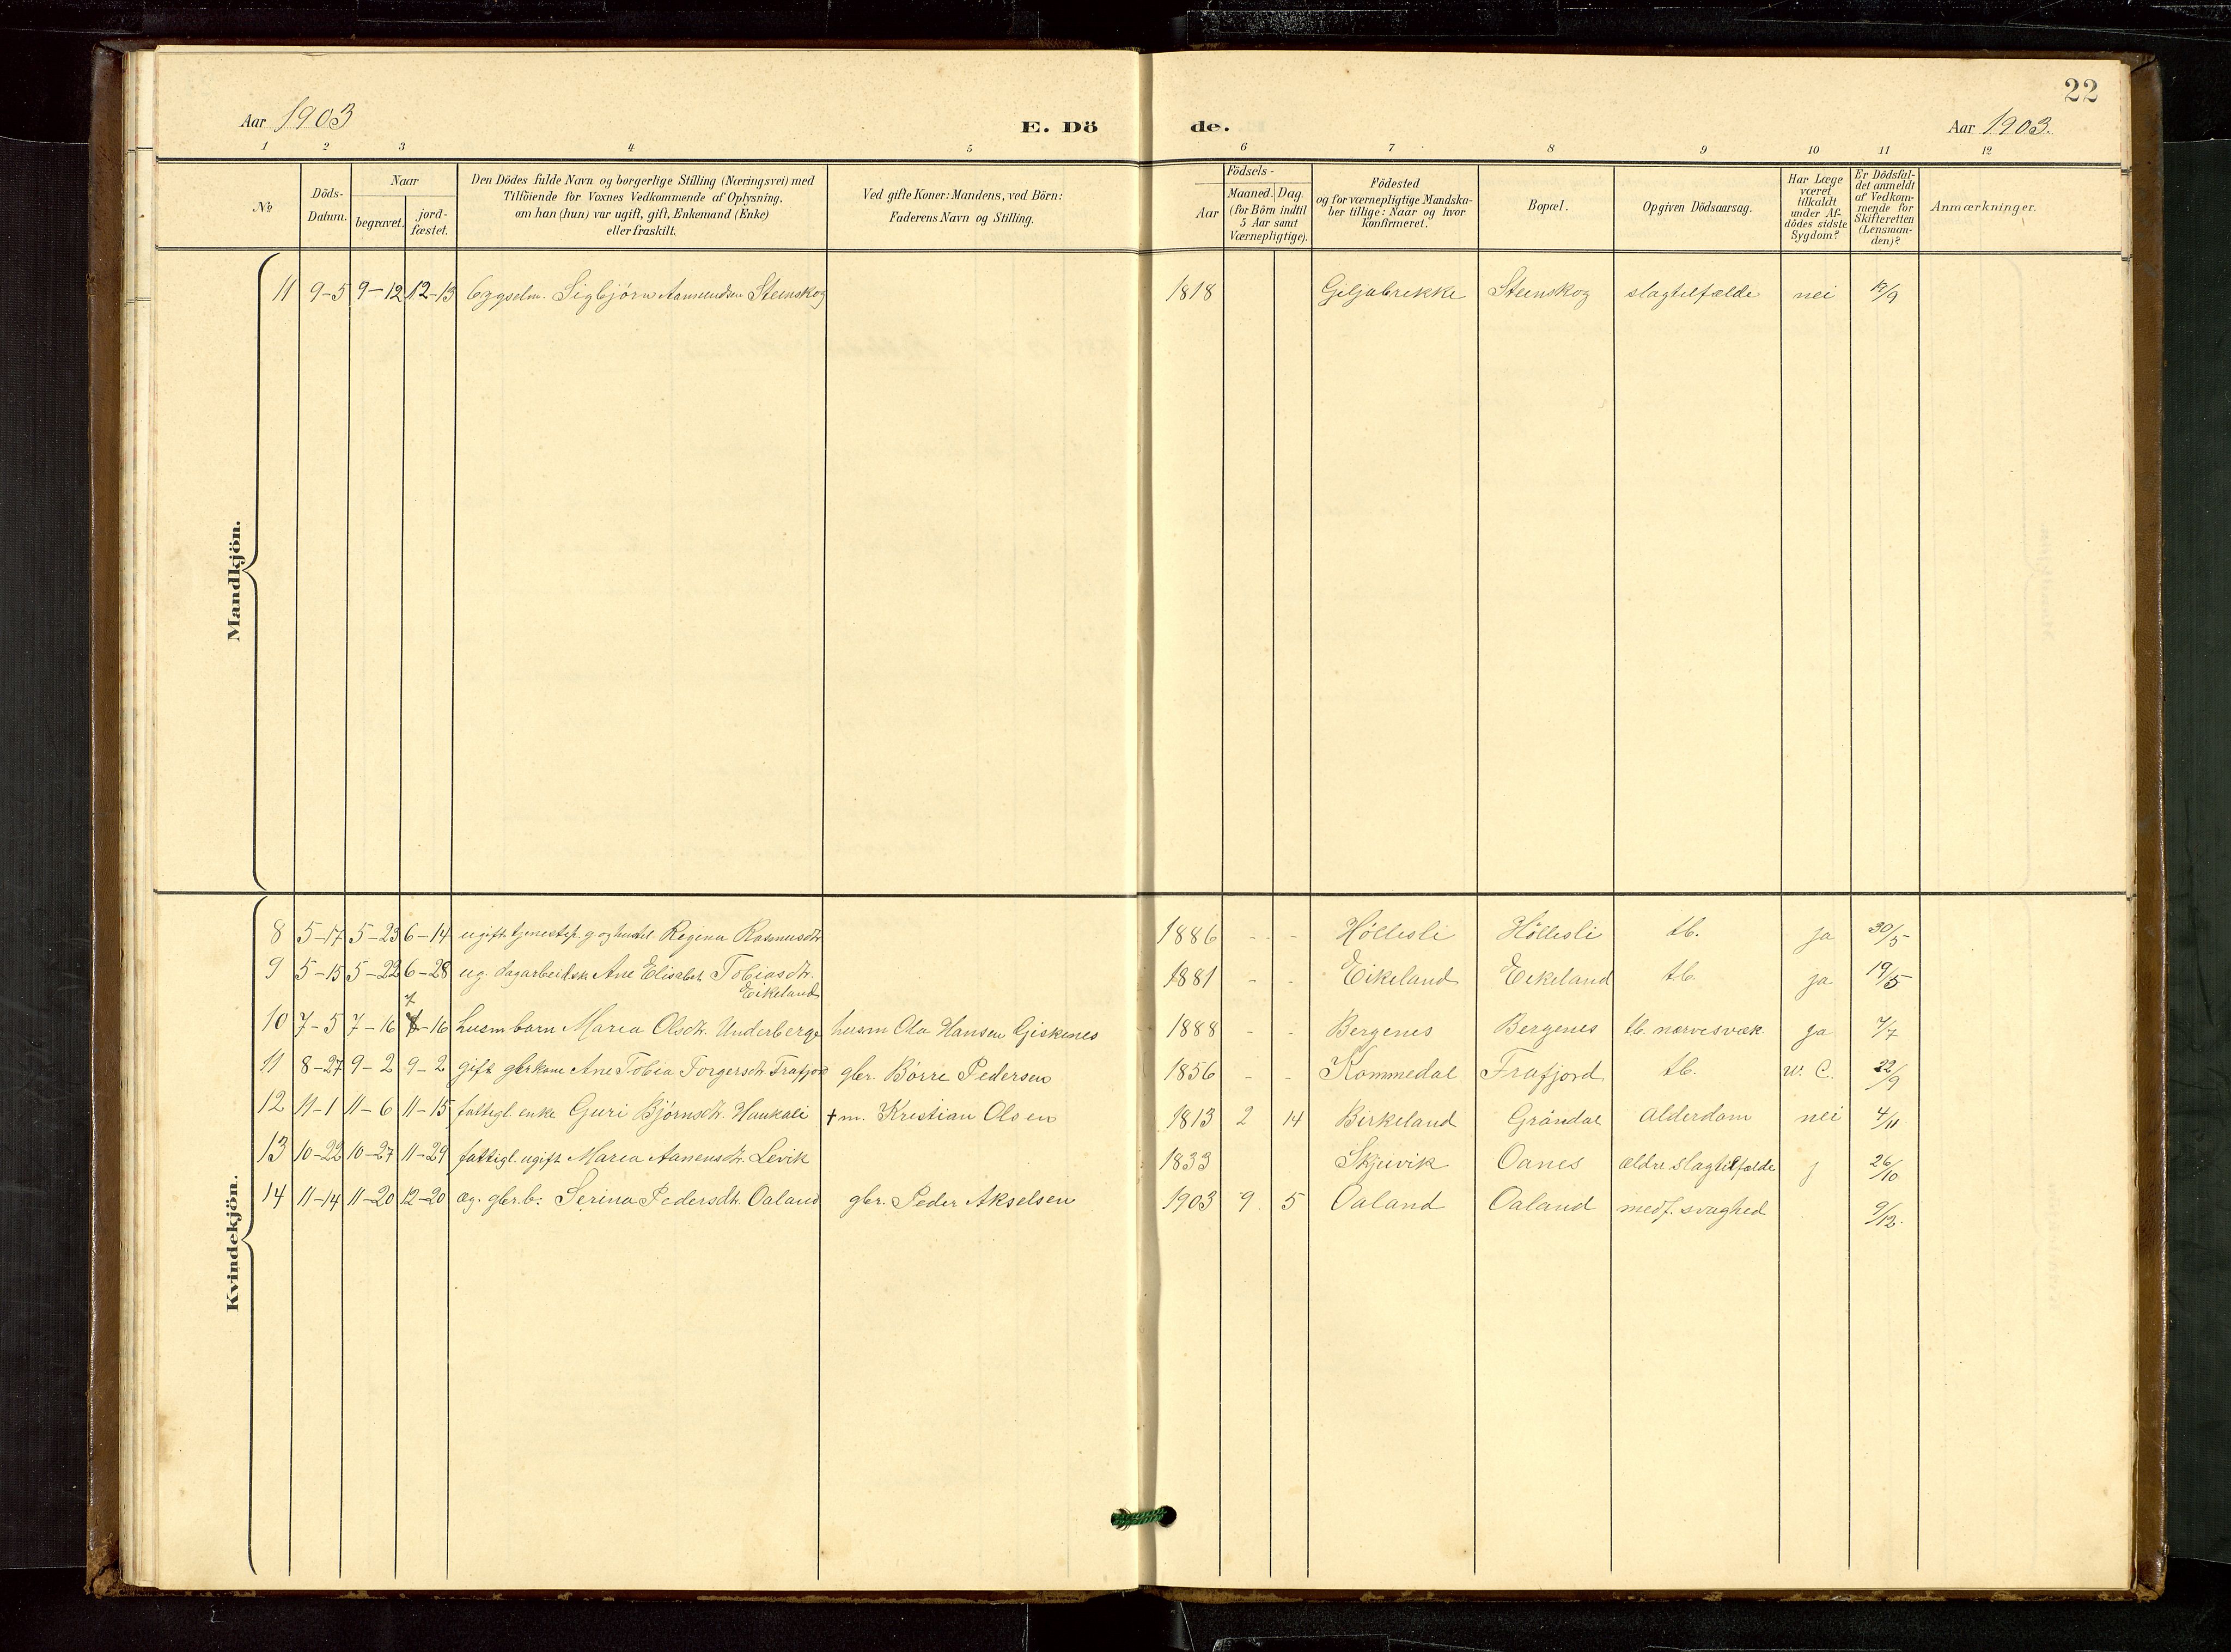 22
Aar 1903
E. Dö
de.
Aar 1903.
1 2 3 4 5 6 7 8 9 10 11 12
No
Döds-Datum.
Naar
begravet.
jord-fæstet.
Den Dödes fulde Navn og borgerlige Stilling (Næringsvei) med
Tilföiende for Voxnes Vedkommende af Oplysning,
om han (hun) var ugift, gift, Enkemand (Enke)
eller fraskilt.
Ved gifte Koner: Mandens, ved Börn:
Faderens Navn og Stilling.
Födsels-
Aar
Maaned.
Dag.
(for Börn indtil
5 Aar samt
Værnepligtige).
Födested
og for værnepligtige Mandska-
ber tillige: Naar og hvor
konfirmeret.
Bopæl.
Opgiven Dödsaarsag.
Har Læge
været
tilkaldt
under Af-
dödes sidste
Sygdom?
Er Dödsfal-
det anmeldt
af Vedkom-
mende for
Skifteretten
(Lensman-
den)?
Anmærkninger.
Mandkjön.
11 9-5 9-12 12-13 bygselm. Sigbjörn Aanundsen Steinskog 1818 Giljabrekke Steinskog slagtilfælde nei 12/9
Kvindekjön.
8 5-17 5-23 6-14 ugift tjenestep. Regina Rasmusdtr. 1886 - - Höllesli Höllesli tb. ja 30/5
9 5-15 5-22 6-28 ug. dagarbeidsk. Ane Elisabet Tobiasdtr. 1881 - - Eikeland Eikeland tb. ja 19/5
Eikeland
7
10 7-5 7-16 -16 husm barn Maria Olsdtr. Underberge husm Ola Hansen Giskenes 1888 - - Bergenes Bergenes tb. nærvesvæk. ja 7/7
11 8-27 9-2 9-2 gift gbrkone Ane Tobia Torgersdtr. Frafjord gbr. Börre Pedersen 1856 - - Kommedal Frafjord tb. w. C. 22/9
12 11-1 11-6 11-15 fattigl. enke Guri Bjørnsdtr. Haukali + m. Kristian Olsen 1813 2 14 Birkeland Gröndal Alderdom nei 4/11
13 10-22 10-27 11-29 fattigl. ugift Maria Aanensdtr. Levik 1833 Skjeivik Oanes ældre slagtilfælde j 26/10
14 11-14 11-20 12-20 æg. gbr. b. Serina Pedersdtr. Oaland gbr. Peder Akselsen 1903 9 5 Oaland Oaland medf. svaghed 9/12.